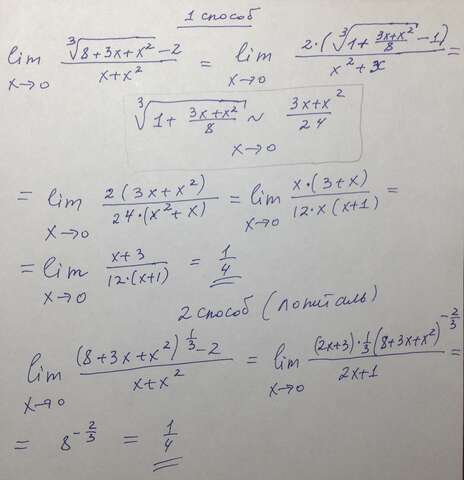 1 способ
lim x→0 (∛(8+3x+x²) - 2)/(x+x²) = lim x→0 2·(∛(1+(3x+x²)/8) - 1)/(x²+x) =
∛(1+(3x+x²)/8) ~ (3x+x²)/24
x→0
= lim x→0 2(3x+x²)/(24·(x²+x)) = lim x→0 x·(3+x)/(12·x(x+1)) =
= lim x→0 (x+3)/(12·(x+1)) = 1/4
2 способ (лопиталь)
lim x→0 ((8+3x+x²)^(1/3) - 2)/(x+x²) = lim x→0 ((2x+3)·1/3(8+3x+x²)^(-2/3))/(2x+1) =
= 8^(-2/3) = 1/4